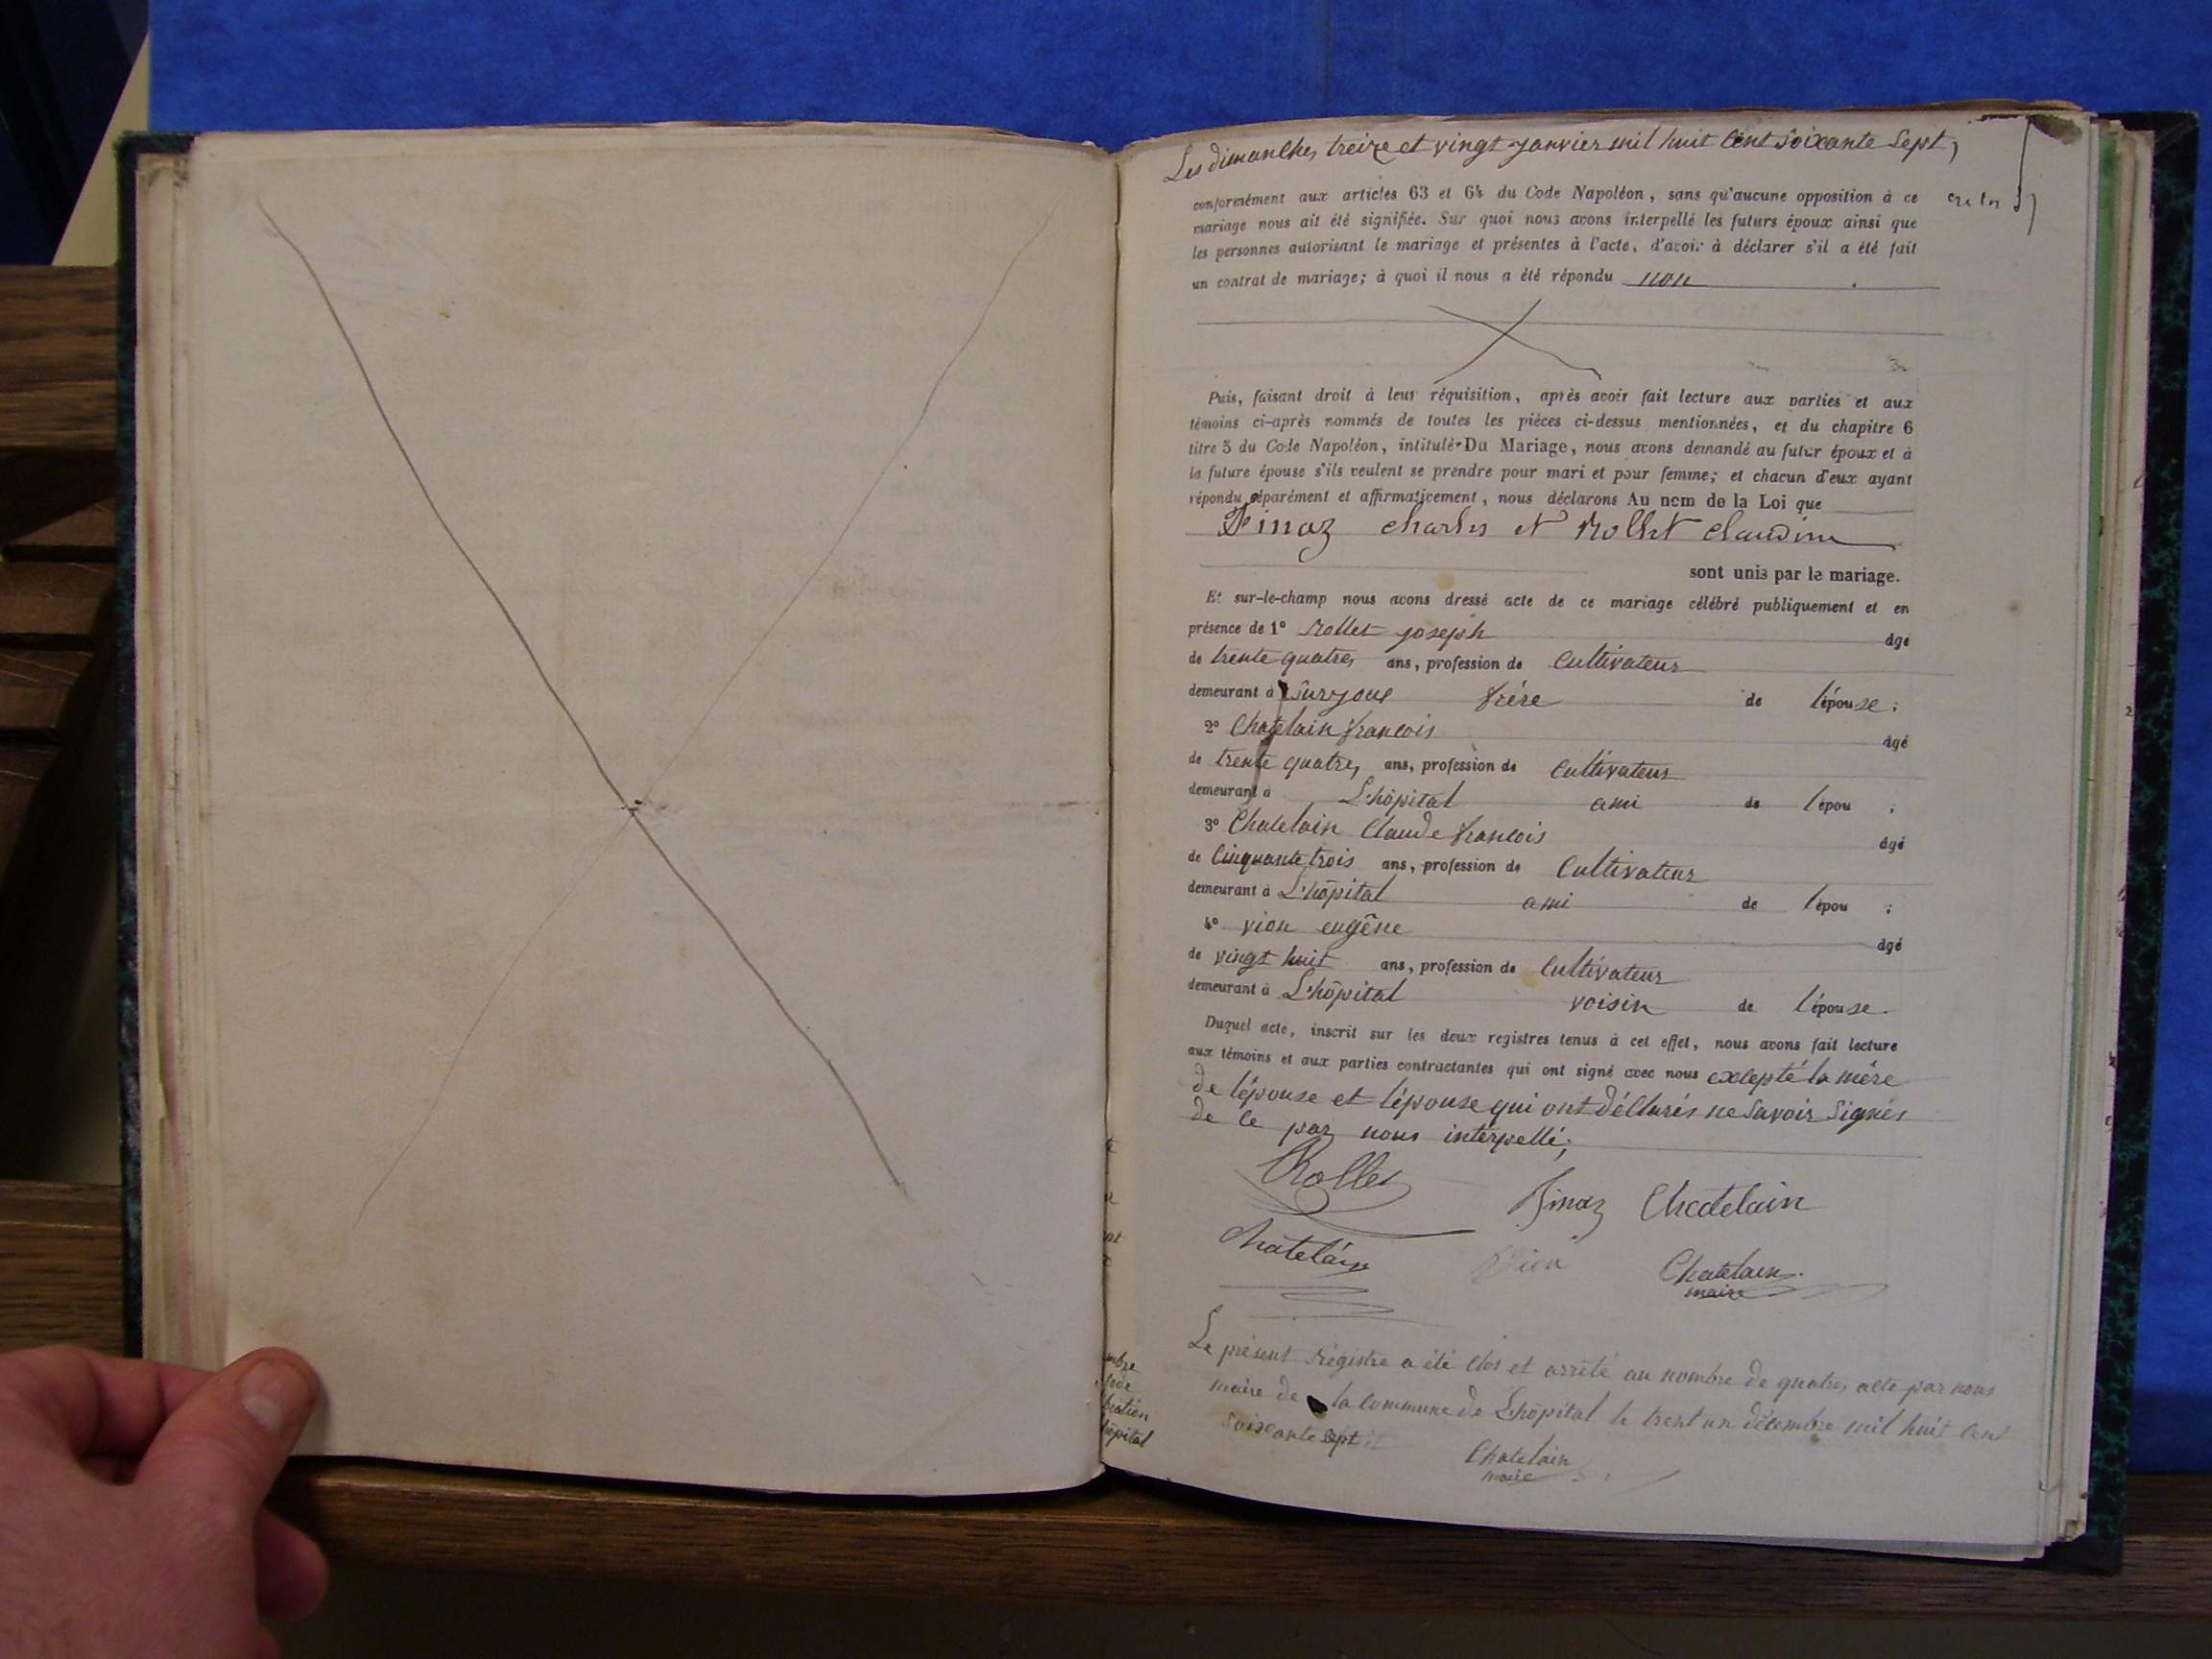 Les dimanches treize et vingt janvier mil huit cent soixante sept,
conformément aux articles 63 et 64 du Code Napoléon, sans qu'aucune opposition à ce
mariage nous ait été signifiée. Sur quoi nous avons interpellé les futurs époux ainsi que
les personnes autorisant le mariage et présentes à l'acte, d'avoir à déclarer s'il a été fait
un contrat de mariage; à quoi il nous a été répondu non
Puis, faisant droit à leur réquisition, après avoir fait lecture aux parties et aux
témoins ci-après nommés de toutes les pièces ci-dessus mentionnées, et du chapitre 6
titre 5 du Code Napoléon, intitulé Du Mariage, nous avons demandé au futur époux et à
la future épouse s'ils veulent se prendre pour mari et pour femme; et chacun d'eux ayant
répondu séparément et affirmativement, nous déclarons Au nom de la Loi que
Pinaz charles et Rollet claudine
sont unis par le mariage.
Et sur-le-champ nous avons dressé acte de ce mariage célébré publiquement et en
présence de 1° Rollet joseph âgé
de trente quatre, ans, profession de Cultivateur
demeurant à Surjoux frère de l'épouse;
2° Chatelain francois âgé
de trente quatre, ans, profession de Cultivateur
demeurant à L'hôpital ami de l'épou ;
3° Chatelain Claude francois âgé
de Cinquante trois ans, profession de Cultivateur
demeurant à L'hôpital ami de l'épou ;
4° vion eugêne âgé
de vingt huit ans, profession de Cultivateur
demeurant à L'hôpital voisin de l'épouse.
Duquel acte, inscrit sur les deux registres tenus à cet effet, nous avons fait lecture
aux témoins et aux parties contractantes qui ont signé avec nous excepté la mére
de l'épouse et l'épouse qui ont déclarés ne savoir signés
de ce par nous interpellé;
Rollet
Pinaz Chatelain
Chatelain
Vion Chatelain
maire
Le présent régistre a été clos et arrêté au nombre de quatre, acte par nous
maire de la commune de L'hôpital le trent un décembre mil huit cent
soixante sept
Chatelain
maire